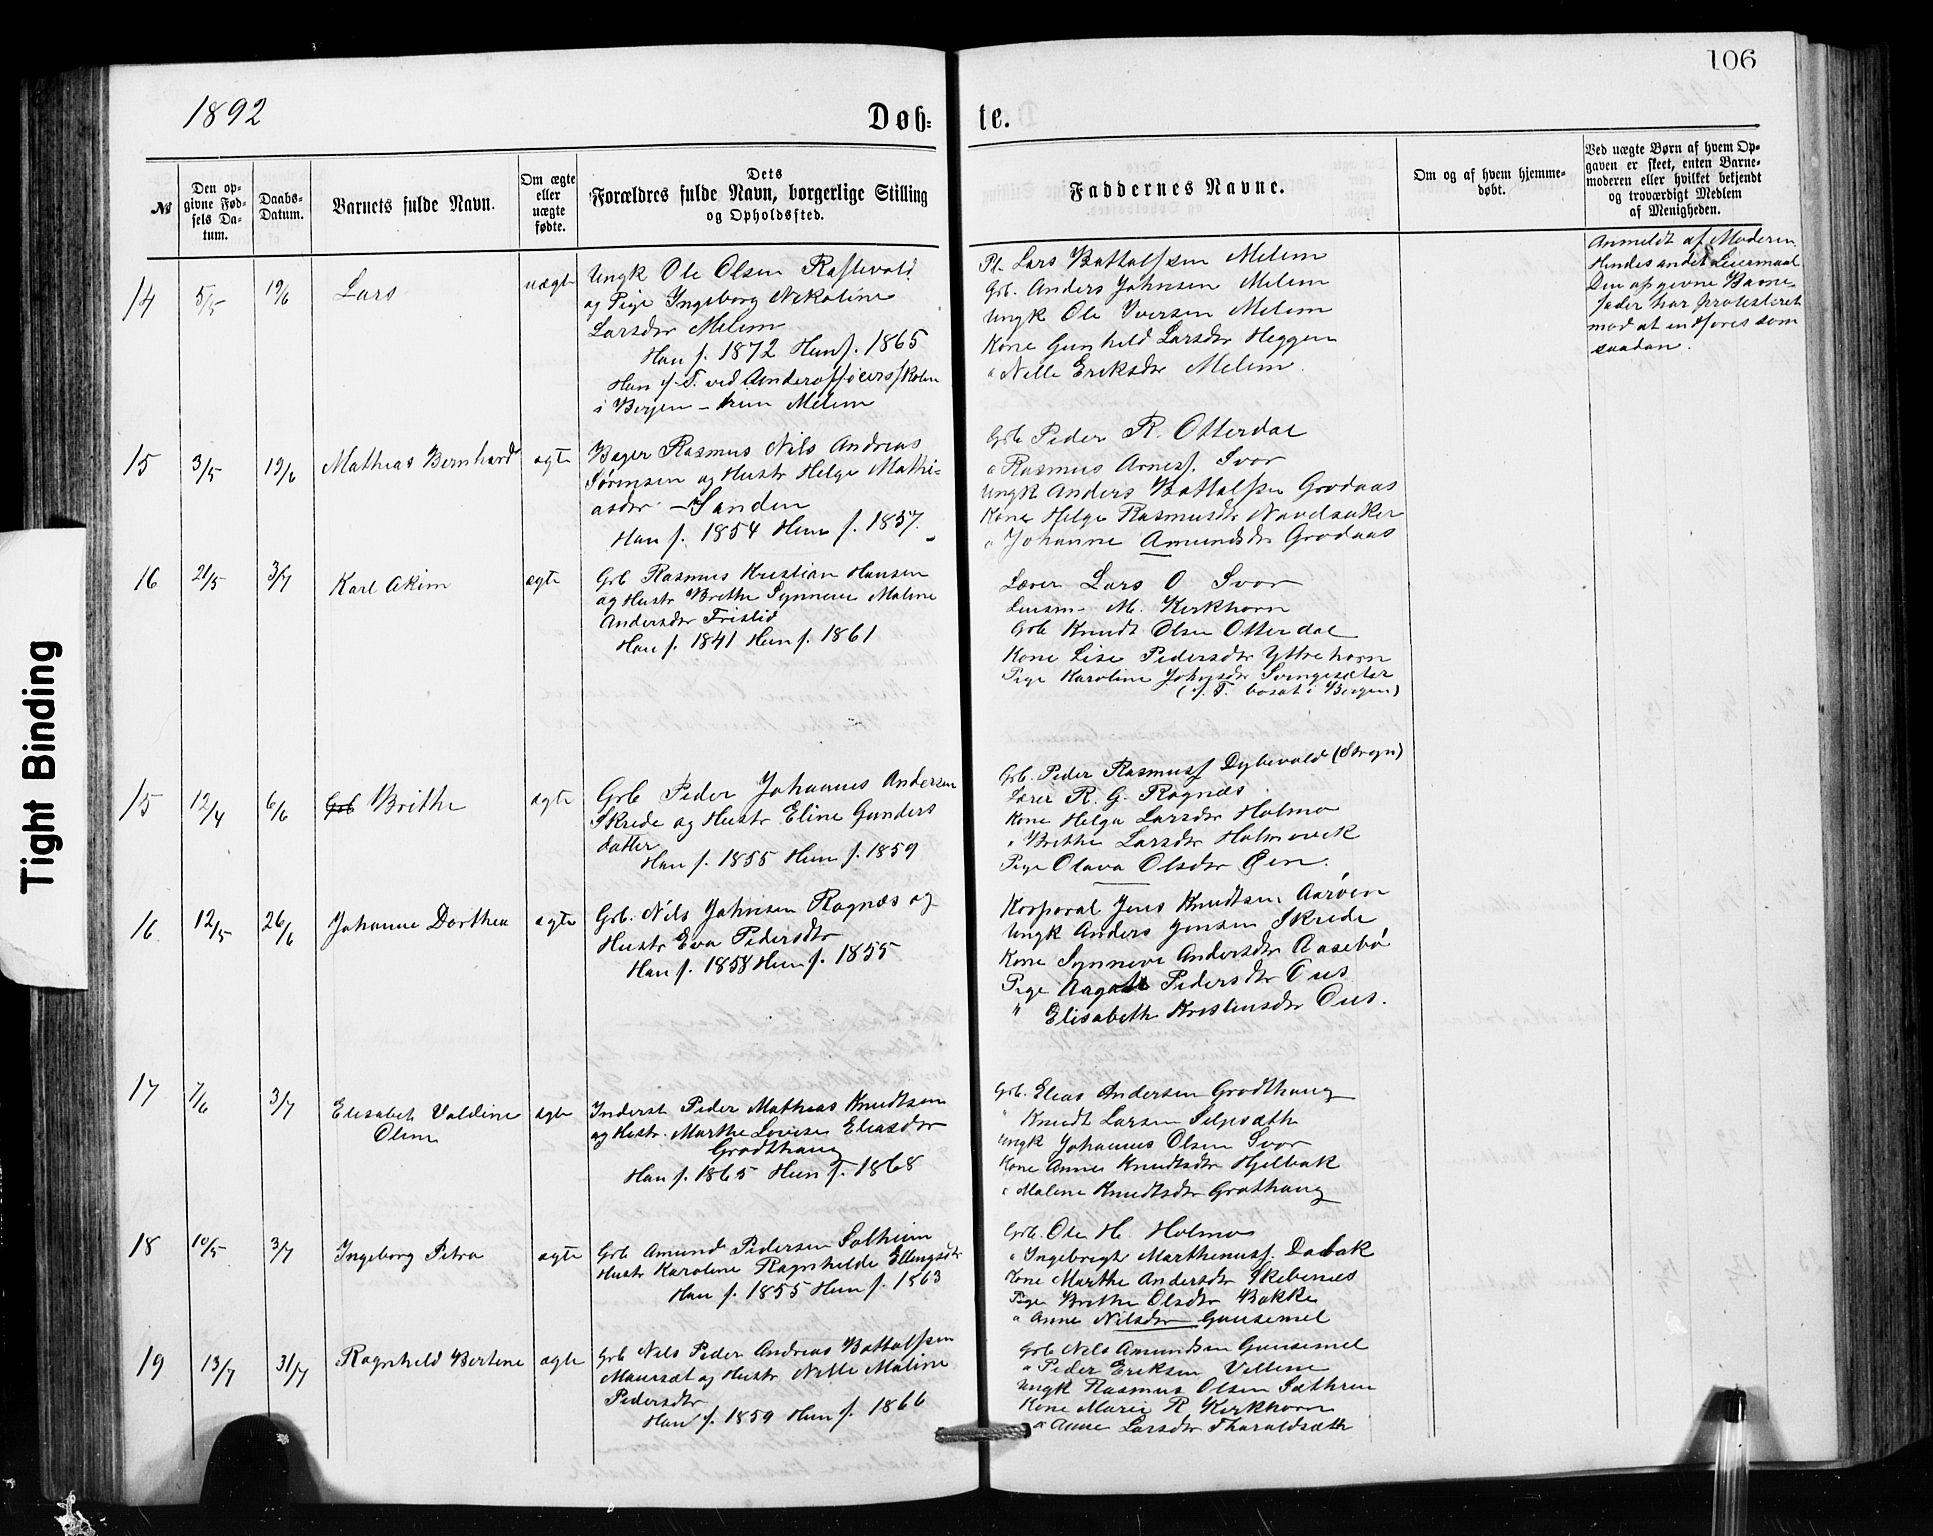 106
1892
Døb-
te.
№
Den op-
givne Fød-
sels Da-
tum.
Daabs-
Datum.
Barnets fulde Navn.
Om ægte
eller
uægte
fødte.
Dets
Forældres fulde Navn, borgerlige Stilling
og Opholdssted.
Faddernes Navne.
Om og af hvem hjemme-
døbt.
Ved uægte Børn af hvem Op-
gaven er skeet, enten Barne-
moderen eller hvilket betjendt
og troværdigt Medlem
af Menigheden.
14
5/5
19/6
Lars
uægte
Ungk Ole Olsen Raftevold
og Pige Ingeborg Nikoline
Larsdtr Melem
Han f. 1872 Hun f. 1865
Han f. T. ved Underofficersskolen
i Bergen - hun Melem
Pl. Lars Bottolfsen Melem
Grb. Anders Johnsen Melem
Ungk Ole Iversen Melem
Kone Gunhild Larsdtr Heggen
" Nille Eriksdtr Melem
Anmeldt af Moderen
Hendes andet Leiermaal
Den opgivne Barne-
fader har protesteret
mod at indføres som
saadan.
15
3/5
19/6
Mathias Bernhard
ægte
Bager Rasmus Nils Andreas
Sørensen og Hustr Helge Mathi-
asdtr - Sanden
Han f. 1854 Hun f. 1857.
Grb Peder R. Otterdal
" Rasmus Arnesf. Svor
Ungk Anders Bottolfsen Grodaas
Kone Helge Rasmusdtr Navelsaker
" Johanne Amundsdtr Grodaas
16
21/5
3/7
Karl Akim
ægte
Grb Rasmus Kristian Hansen
og Hustr Brithe Synneve Maline
Andersdtr Frislid
Han f. 1841 Hun f. 1861
Lærer Lars O. Svor
Lensm. M. Kirkhorn
Grb Knudt Olsen Otterdal
Kone Lise Pedersdtr Yttrehorn
Pige Karoline Johnsdtr Svingesæter
(f. T. bosat i Bergen)
15
12/4
6/6
Grb Brithe
ægte
Grb Peder Johannes Andersen
Skrede og Hustr Eline Gunders
datter
Han f. 1855 Hun f. 1859
Grb. Peder Rasmusf Dybevold (Stryn)
Lærer R. G. Rognæs
Kone Helga Larsdtr Holmø
" Brithe Larsdtr Holmøvik
Pige Olava Olsdtr Øen.
16
12/5
26/6
Johanne Dorthea
ægte
Grb. Nils Johnsen Rognæs og
Hustr Eva Pedersdtr
Han f. 1858 Hun f. 1855
Korporal Jens Knudtsen Aarøen
Ungk Anders Jensen Skrede
Kone Synneve Andersdtr Aasebø
Pige Pedersdtr Ous
" Elisabeth Kristensdtr Ous.
17
7/6
3/7
Elisabet Valdine
Oline
ægte
Inderst Peder Mathias Knudtsen
og Hustr. Marthe Lovise Eliasdtr
Grodthaug
Han f. 1865 Hun f. 1868
Grb. Elias Andersen Grodthaug
" Knudt Larsen Silsæth
Ungk Johannes Olsen Svor
Kone Anne Knudtsdtr Hjelbak
" Maline Knudtsdtr Grothaug
18
10/5
3/7
Ingeborg Petra
ægte
Grb Amund Pedersen Solheim
Hustr Karoline Ragnhilde Ellingsdtr
Han f. 1855 Hun f. 1863
Grb. Ole H. Holmø
" Ingebrigt Marthinusf. Dalak
Kone Marthe Andersdtr Skibenes
Pige Brithe Olsdtr Bakke
" Anne Nilsdtr Gausemel
19
13/7
31/7
Ragnhild Bertine
ægte
Grb Nils Peder Andreas Bottolfsen
Maurset og Hustr Nille Maline
Pedersdtr
Han f. 1859 Hun f. 1866
Grb Nils Amundsen Gausemel
" Peder Eriksen Vellem
Ungk Rasmus Olsen Sæthren
Kone Marie R Kirkhorn
" Anne Larsdtr Tharaldsæth
Tight Binding